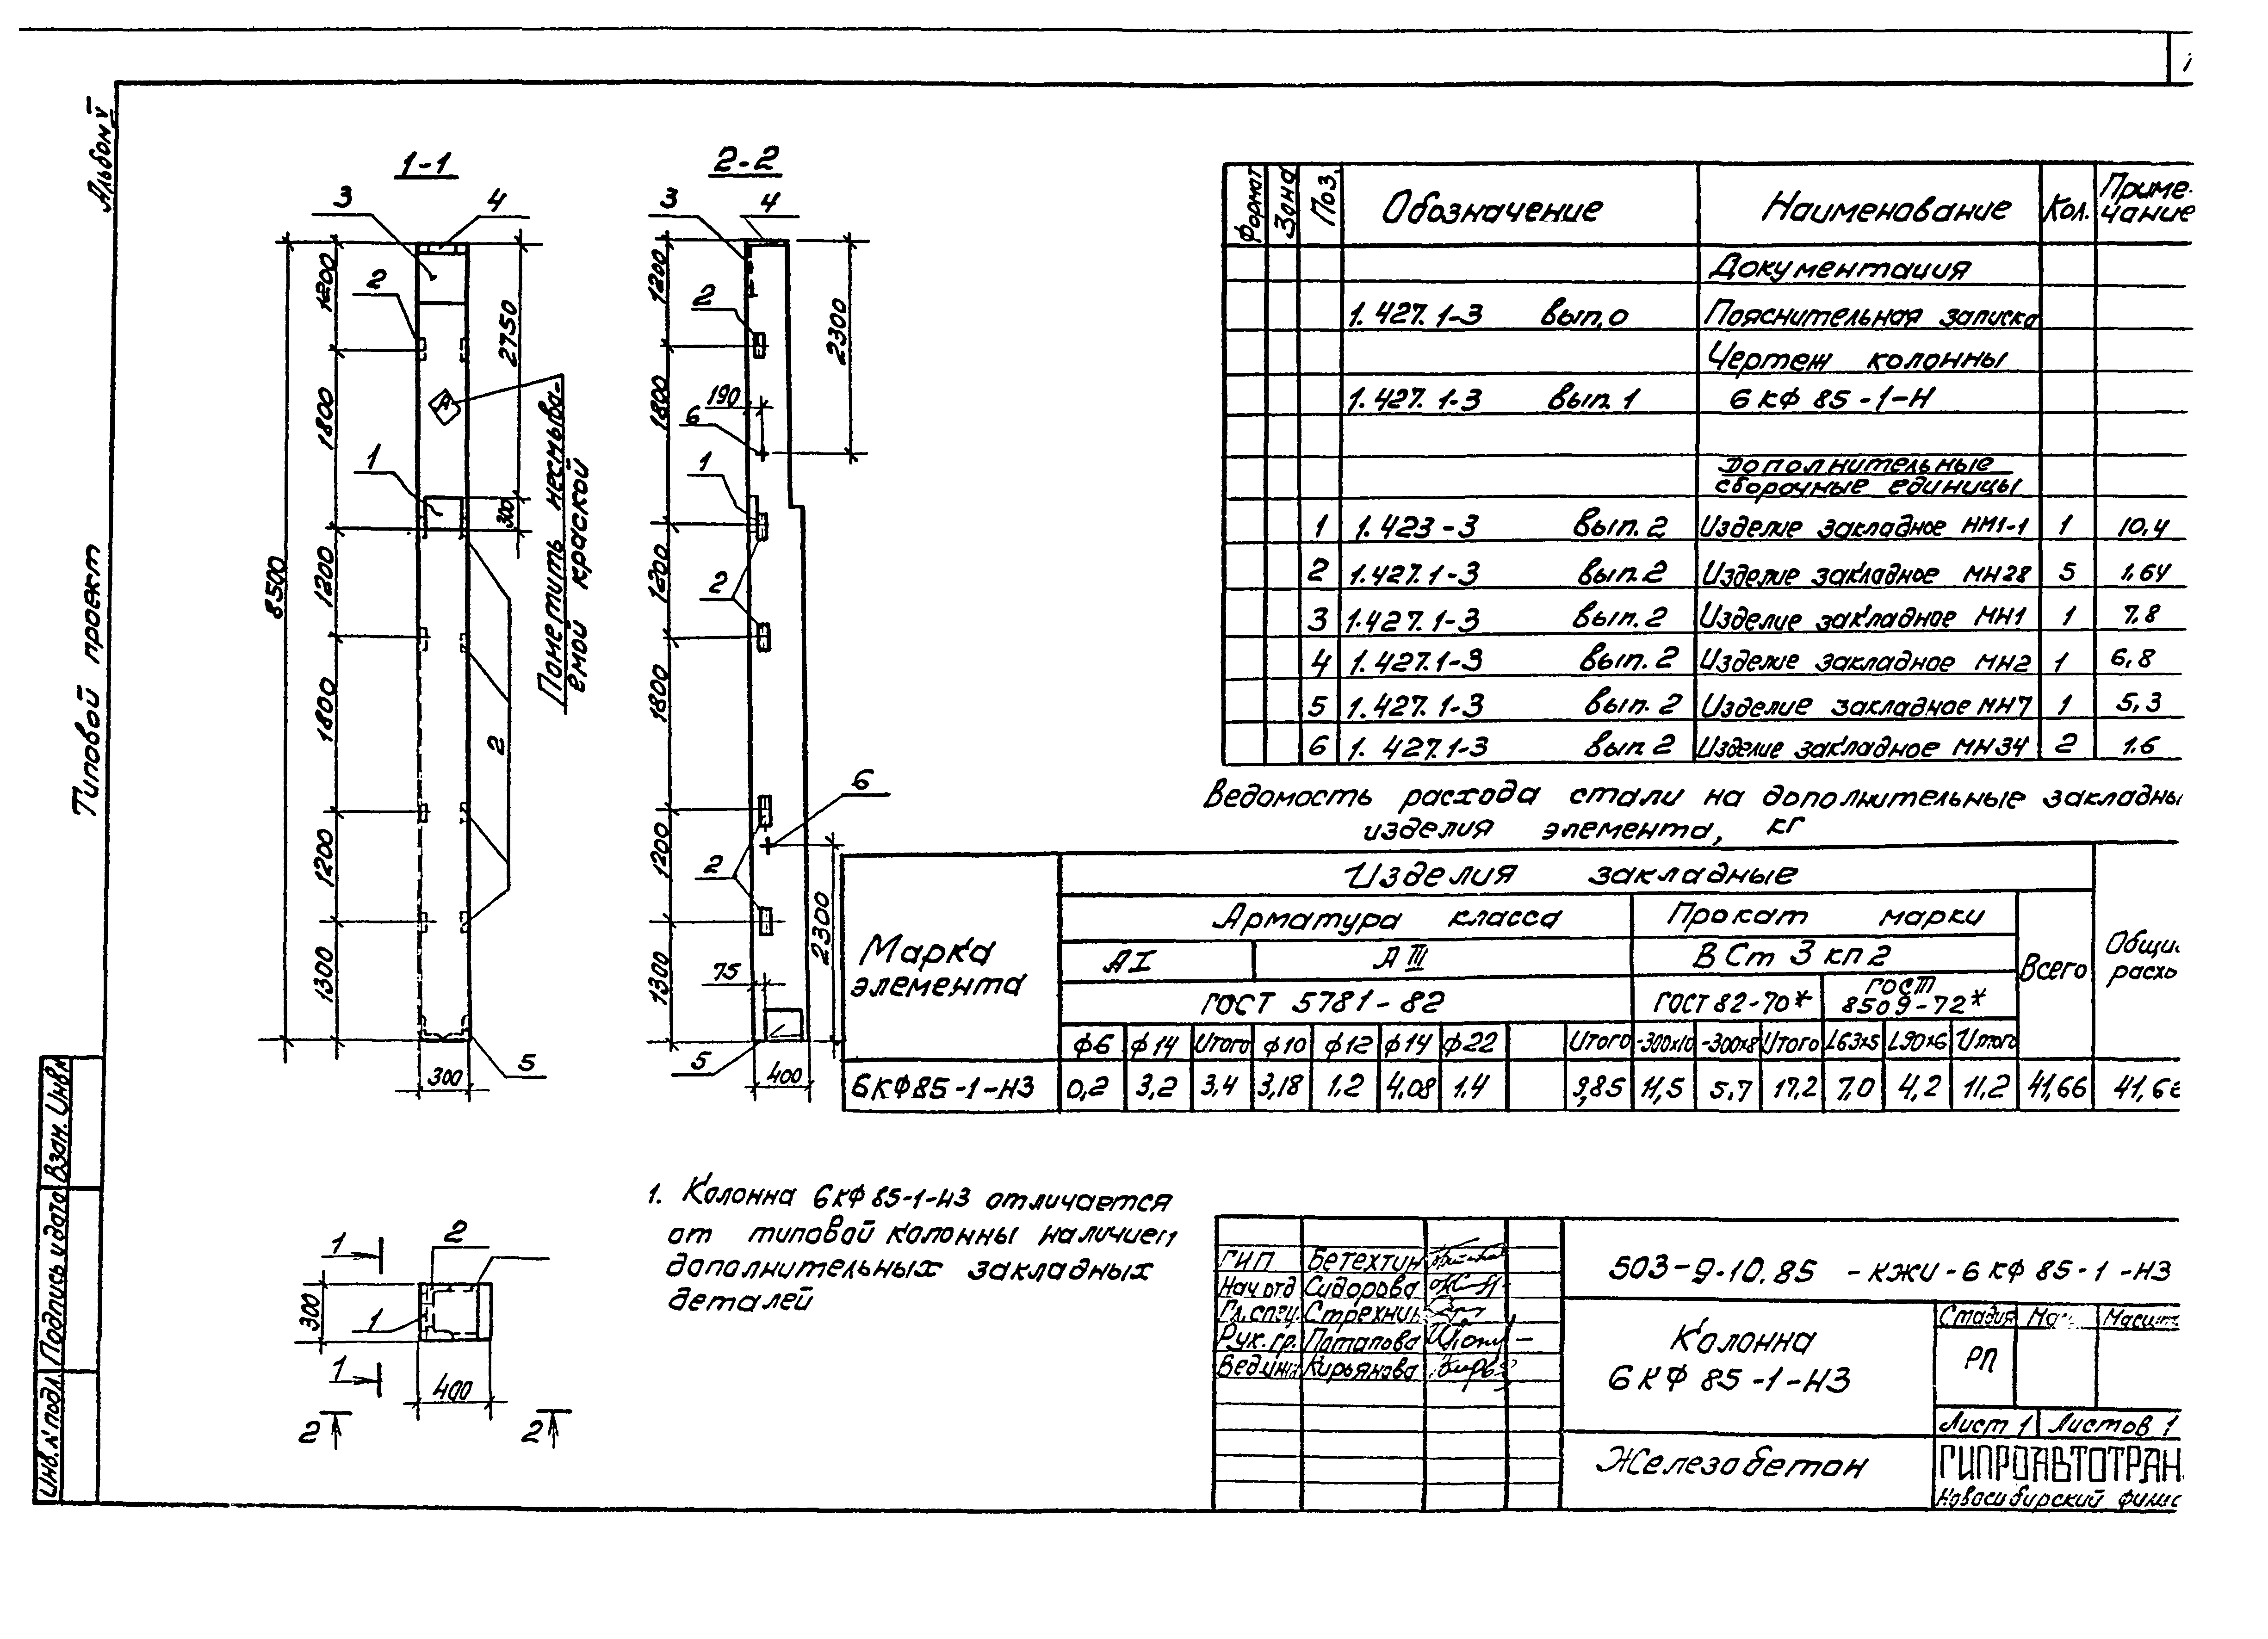 Альбом V
Типовой проект
1-1
3
4
2
1200
1800
1200
1800
1200
1300
8500
2750
300
1
2
5
300
Пометить несмыва-
емой краской
2-2
3
4
1200
2
2300
190
1800
6
1
1200
2
1800
6
1200
2
2300
75
1300
5
400
Формат Зона Поз. Обозначение Наименование Кол. Приме-
чание
Документация
1.427.1-3 вып.0 Пояснительная записка
Чертеж колонны
1.427.1-3 вып.1 6КФ85-1-Н
Дополнительные
сборочные единицы
1 1.423-3 вып.2 Изделие закладное НМ1-1 1 10,4
2 1.427.1-3 вып.2 Изделие закладное МН28 5 1.64
3 1.427.1-3 вып.2 Изделие закладное МН1 1 7.8
4 1.427.1-3 вып.2 Изделие закладное МН2 1 6,8
5 1.427.1-3 вып.2 Изделие закладное МН7 1 5,3
6 1.427.1-3 вып.2 Изделие закладное МН34 2 1.6
Ведомость расхода стали на дополнительные закладны
изделия элемента, кг
Марка
элемента
Изделия закладные
Арматура класса Прокат марки
АI АIII ВСт3кп2
Всего
Общи
расхо
ГОСТ 5781-82 ГОСТ 82-70* ГОСТ
8509-72*
ф6 ф14 Итого ф10 ф12 ф14 ф22 Итого -300х10 -300х8 Итого L63х5 L90х6 Итого
6КФ85-1-Н3 0,2 3,2 3,4 3,18 1.2 4,08 1.4 9,85 11,5 5,7 17,2 7,0 4,2 11,2 41,66 41,6
1. Колонна 6КФ85-1-Н3 отличается
от типовой колонны наличием
дополнительных закладных
деталей
1
2
300
1
1
400
2 2
ГИП Бетехтин
Нач.отд Сидорова
Гл.спец. Стрехнин
Рук.гр. Потапова
Вед.инж Кирьянова
503-9-10.85 -КЖИ-6КФ85-1-Н3
Колонна
6КФ85-1-Н3
Стадия
РП
Лист 1 Листов 1
Железобетон
ГИПРОАВТОТРАН
Новосибирский фили
Взам. Инв.№
Подпись и дата
Инв.№ подл.